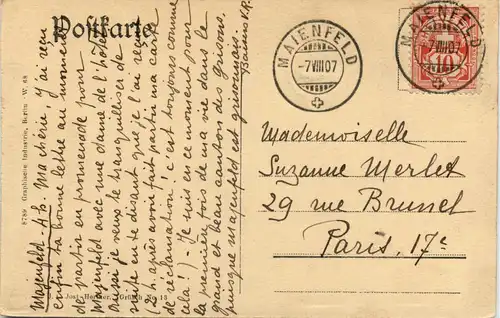 Postkarte
MAIENFELD
-7 VIII 07
MAIENFELD
-7 VIII 07
10
Majenfeld. 4h. Ma chérie, j'ai reçu
enfin ta bonne lettre au moment
de partir en promenade pour
Majenfeld avec une dame de l'hôtel
aussi je veux te tranquilliser de
suite en te disant que je l'ai reçue
(2h. après avoir fait partir ma carte
de réclamation; c'est toujours comme
cela!) - Je suis en ce moment pour
la première fois de ma vie dans le
grand et beau canton des Grisons,
puisque Majenfeld est grisonnais.
Baisers V.P.
Mademoiselle
Suzanne Merlet
29 rue Brunel
Paris, 17e
8789 Graphischen Industrie, Berlin W. 68
Jost No 13